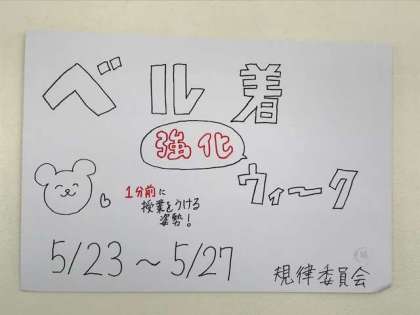 ベル着
強化
ウィーク
1分前に
授業をうける
姿勢!
5/23～5/27
規律委員会